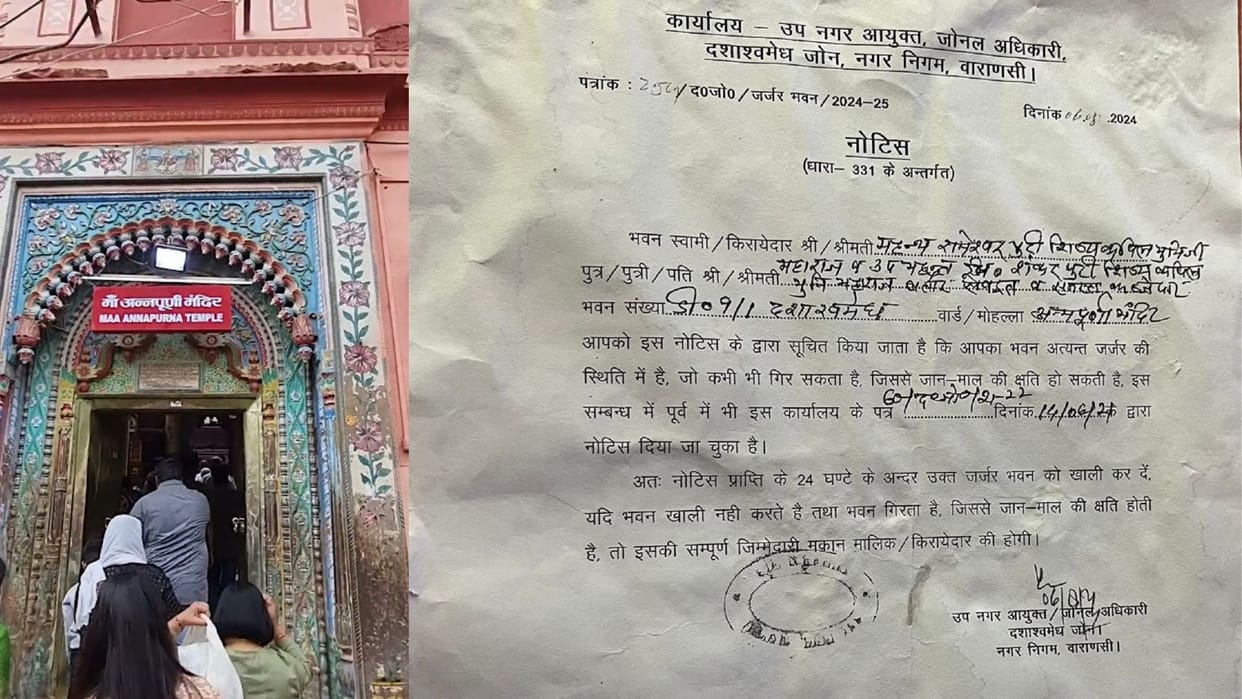 माँ अन्नपूर्णा मंदिर
MAA ANNAPURNA TEMPLE
कार्यालय – उप नगर आयुक्त, जोनल अधिकारी,
दशाश्वमेध जोन, नगर निगम, वाराणसी।
पत्रांक : /द०जो०/जर्जर भवन/2024-25
दिनांक .2024
नोटिस
(धारा– 331 के अन्तर्गत)
भवन स्वामी/किरायेदार श्री/श्रीमती महन्थ रामेश्वर पुरी शिष्य कपिल मुनिजी
पुत्र/पुत्री/पति श्री/श्रीमती महाराज व उप महन्त शंकर पुरी शिष्य कपिल
मुनि महाराज
भवन संख्या डी० 9/1 दशाश्वमेध वार्ड/मोहल्ला अन्नपूर्णा मंदिर
आपको इस नोटिस के द्वारा सूचित किया जाता है कि आपका भवन अत्यन्त जर्जर की
स्थिति में है, जो कभी भी गिर सकता है, जिससे जान–माल की क्षति हो सकती है, इस
सम्बन्ध में पूर्व में भी इस कार्यालय के पत्र दिनांक द्वारा
नोटिस दिया जा चुका है।
अतः नोटिस प्राप्ति के 24 घण्टे के अन्दर उक्त जर्जर भवन को खाली कर दें,
यदि भवन खाली नही करते है तथा भवन गिरता है, जिससे जान–माल की क्षति होती
है, तो इसकी सम्पूर्ण जिम्मेदारी मकान मालिक/किरायेदार की होगी।
उप नगर आयुक्त/जोनल अधिकारी
दशाश्वमेध जोन।
नगर निगम, वाराणसी।